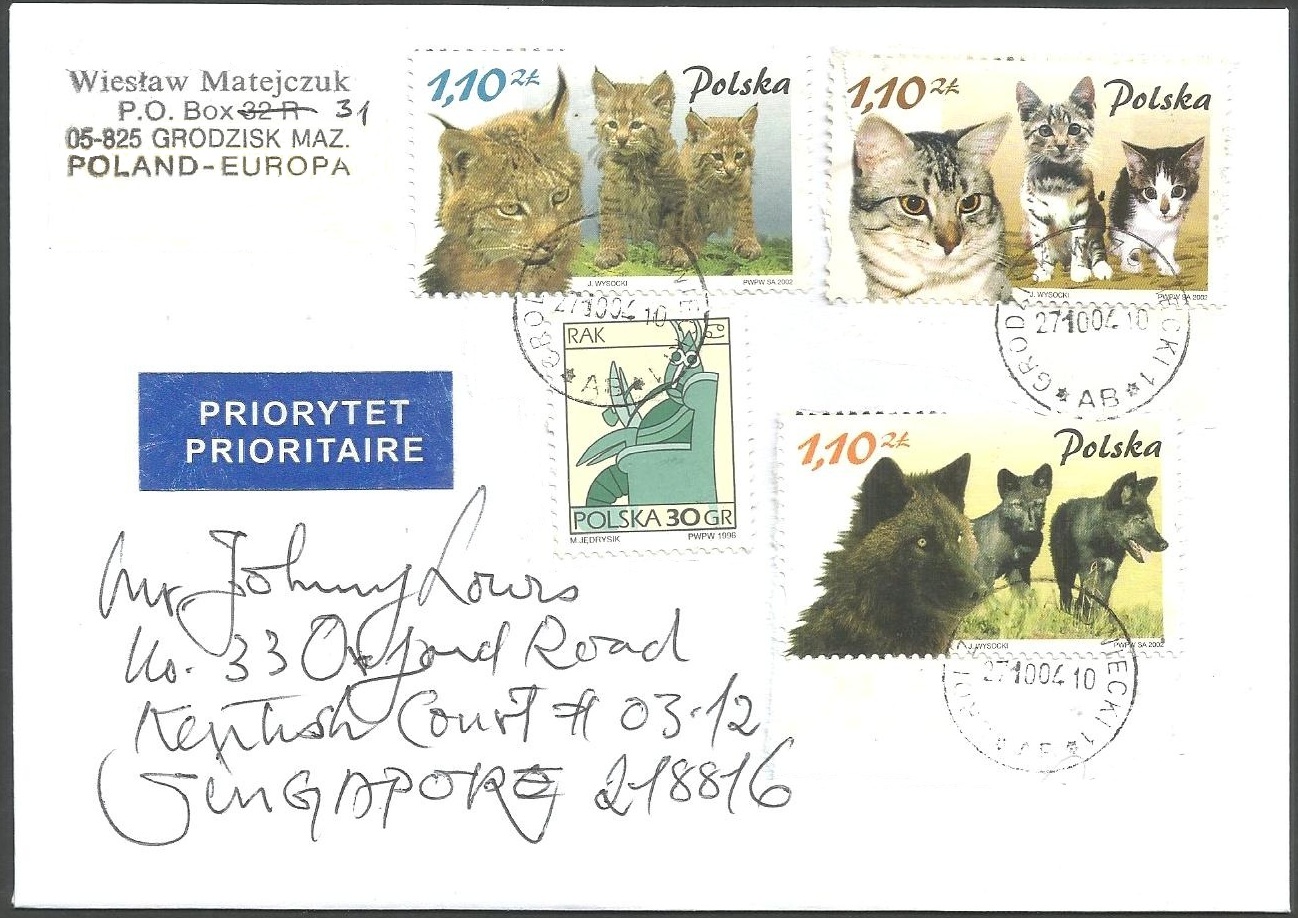 Wiesław Matejczuk
P.O. Box 32 R 31
05-825 GRODZISK MAZ.
POLAND-EUROPA
1,10 zł Polska
J. WYSOCKI PWPW SA 2002
1,10 zł Polska
J. WYSOCKI PWPW SA 2002
271004 10
AB
271004 10
AB
RAK
POLSKA 30 GR
M JĘDRYSIK PWPW 1996
PRIORYTET
PRIORITAIRE
1,10 zł Polska
J. WYSOCKI PWPW SA 2002
271004 10
Mr Johnny Lows
No. 33 Oxford Road
Kentish Court # 03-12
SINGAPORE 218816